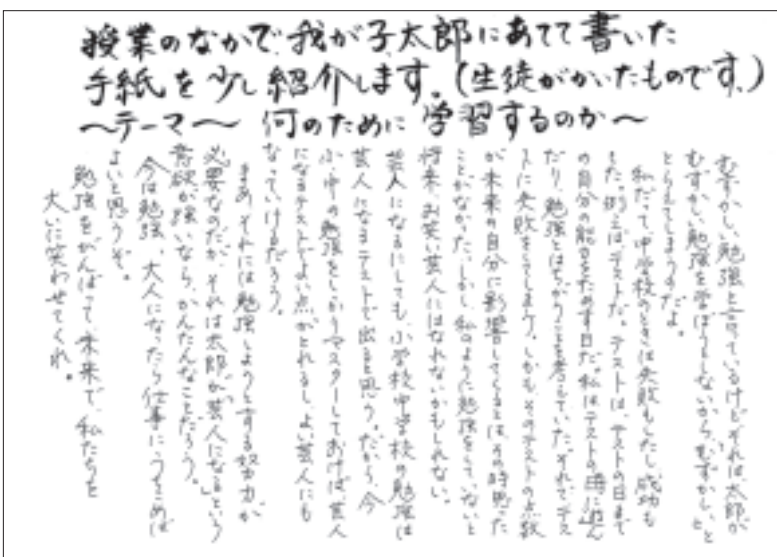 授業のなかで、我が子、太郎にあてて書いた
手紙を少し紹介します。(生徒がかいたものです。)
〜テーマ〜 何のために学習するのか〜
むずかしい勉強と言っているけどそれは、太郎が
むずかしい勉強を学ぼうとしないから、むずかしいと
とらえてしまうのだよ。
私だって中学校のときは失敗もしたし、成功も
した。例えばテストだ。テストは、テストの日まで
の自分の能力をためす日だ。私はテストの時に遊ん
だり、勉強とはちがうことを考えていた。それでテス
トに失敗をしてしまう。しかもそのテストの点数
が未来の自分に影響してくるとはその時思った
ことがなかった。しかし、私のように勉強をしていないと
将来、お笑い芸人にはなれないかもしれない。
芸人になるにしても、小学校中学校の勉強は
芸人になるテストで出ると思う。だから、今
小・中の勉強をしっかりマスターしておけば、芸人
になるテストでよい点がとれるし、よい芸人にも
なっていけるだろう。
まあ、それには勉強しようとする努力が
必要なのだが、それは太郎が「芸人になる」という
意欲が強いなら、かんたんなことだろう。
今は勉強、大人になったら仕事にうちこめば
よいと思うぞ。
勉強をがんばって、未来で、私たちを
大いに笑わせてくれ。